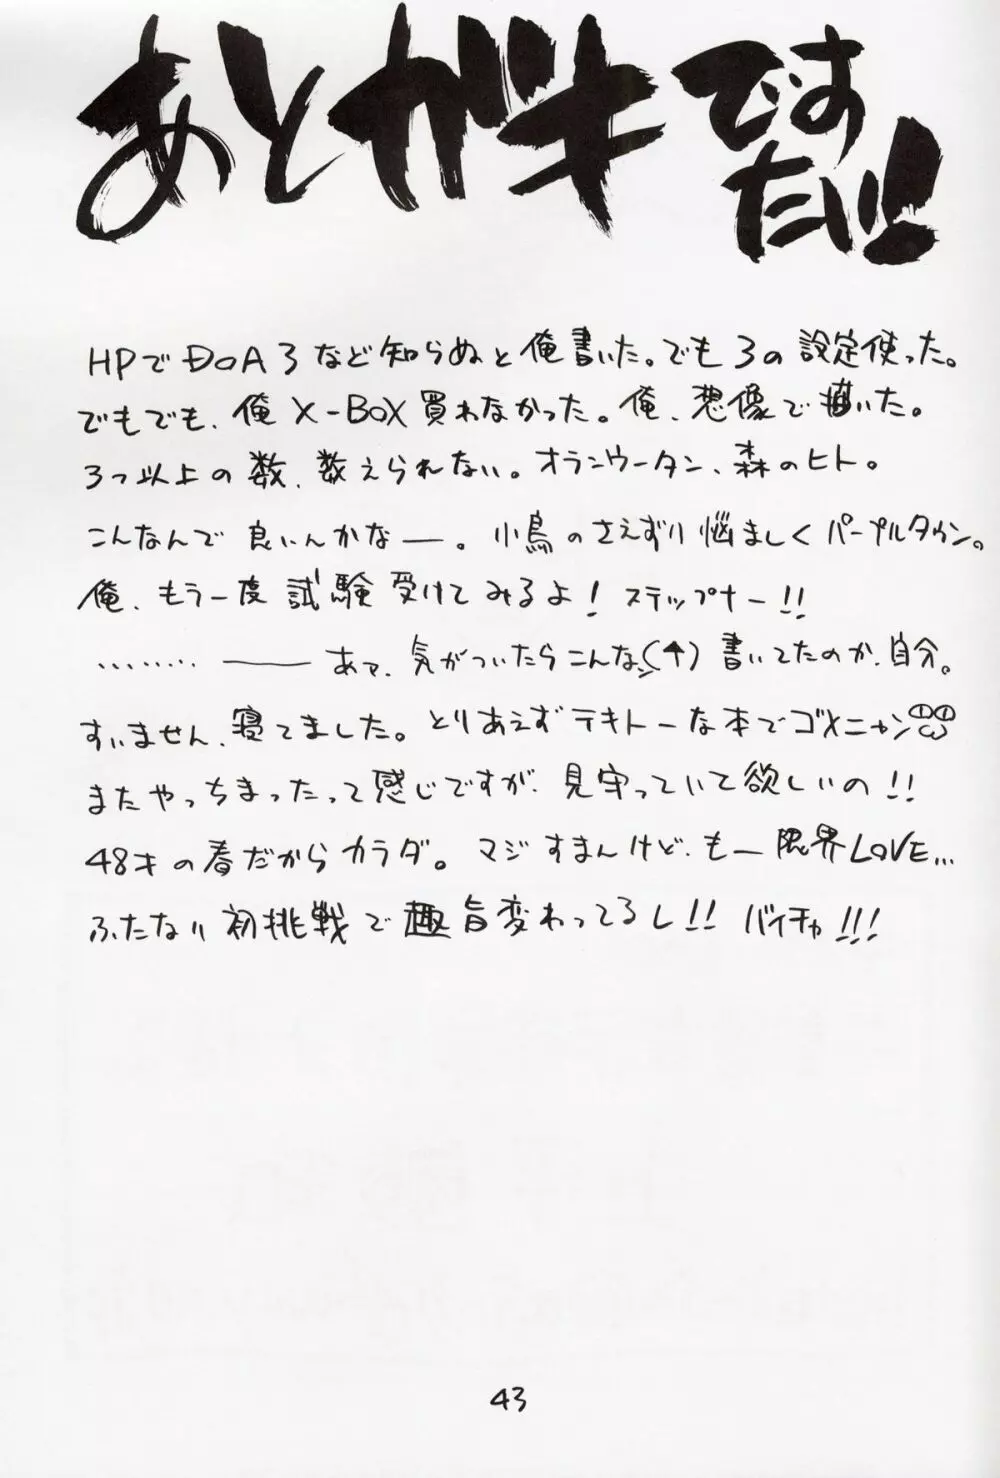 あとガキですたい!!
HPでDOA3など知らぬと俺書いた。でも3の設定使った。
でもでも、俺X-BOX買わなかった。俺、想像で描いた。
3つ以上の数、数えられない。オランウータン、森のヒト。
こんなんで良いんかなー。小鳥のさえずり悩ましくパープルタウン。
俺、もう一度試験受けてみるよ!ステップナー!!
‥‥‥‥ ――― あァ、気がついたらこんな(↑)書いてたのか、自分。
すいません、寝てました。とりあえずテキトーな本でゴメニャン
またやっちまったって感じですが、見守っていて欲しいの!!
48才の春だからカラダ。マジすまんけど、もー限界LOVE…
ふたなり初挑戦で趣旨変わってるし!!バイチャ!!!
43